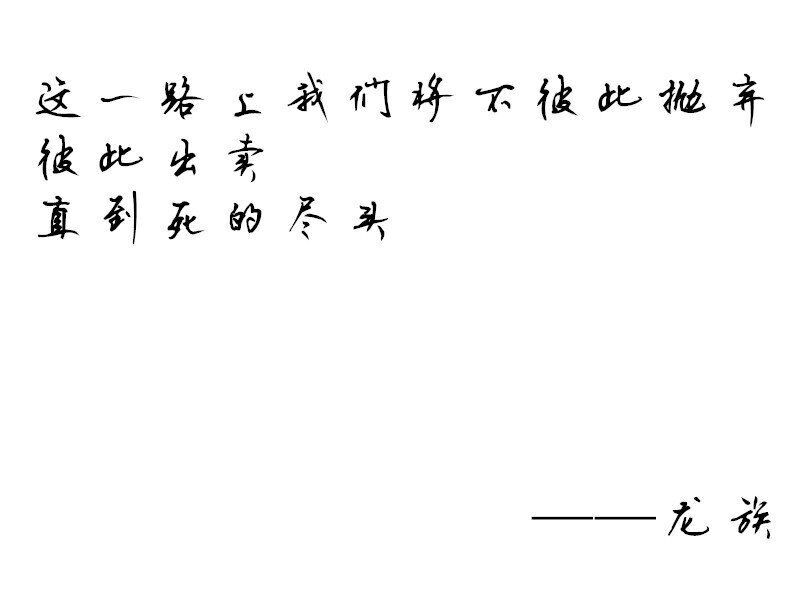 这一路上我们将不彼此抛弃
彼此出卖
直到死的尽头
——龙族